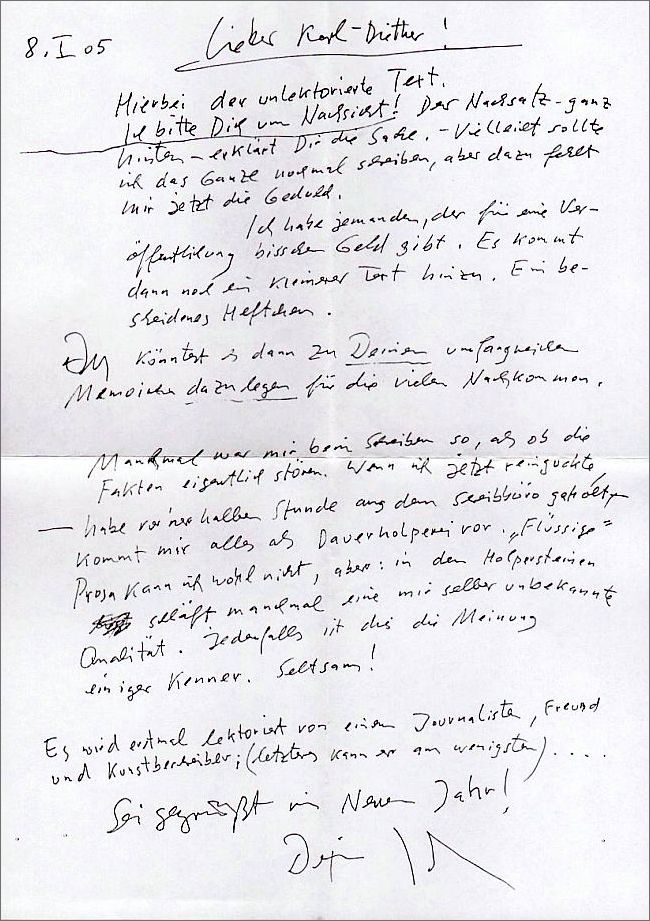 8. I 05
Lieber Karl-Diether!
Hierbei der unlektorierte Text.
Ich bitte Dich um Nachsicht! Der Nachsatz - ganz
hinten - erklärt Dir die Sache. - Vielleicht sollte
ich das Ganze nochmal schreiben, aber dazu fehlt
mir jetzt die Geduld.
Ich habe jemanden, der für eine Ver-
öffentlichung bisschen Geld gibt. Es kommt
dann noch ein kleinerer Text hinzu. Ein be-
scheidenes Heftchen.
Du könntest es dann zu Deinen umfangreichen
Memoiren dazulegen für die vielen Nachkommen.
Manchmal war mir beim Schreiben so, als ob die
Fakten eigentlich stören. Wenn ich jetzt reinguckte,
– habe vor 'ner halben Stunde aus dem Schreibbüro geholt –
kommt mir alles als Dauerholperei vor. „Flüssige"
Prosa kann ich wohl nicht, aber: in den Holpersteinen
schläft manchmal eine mir selber unbekannte
Qualität. Jedenfalls ist dies die Meinung
einiger Kenner. Seltsam!
Es wird erstmal lektoriert von einem Journalisten, Freund
und Kunstbeschreiber; (letzteres kann er am wenigsten) . . . .
Sei gegrüßt im Neuen Jahr!
Dein